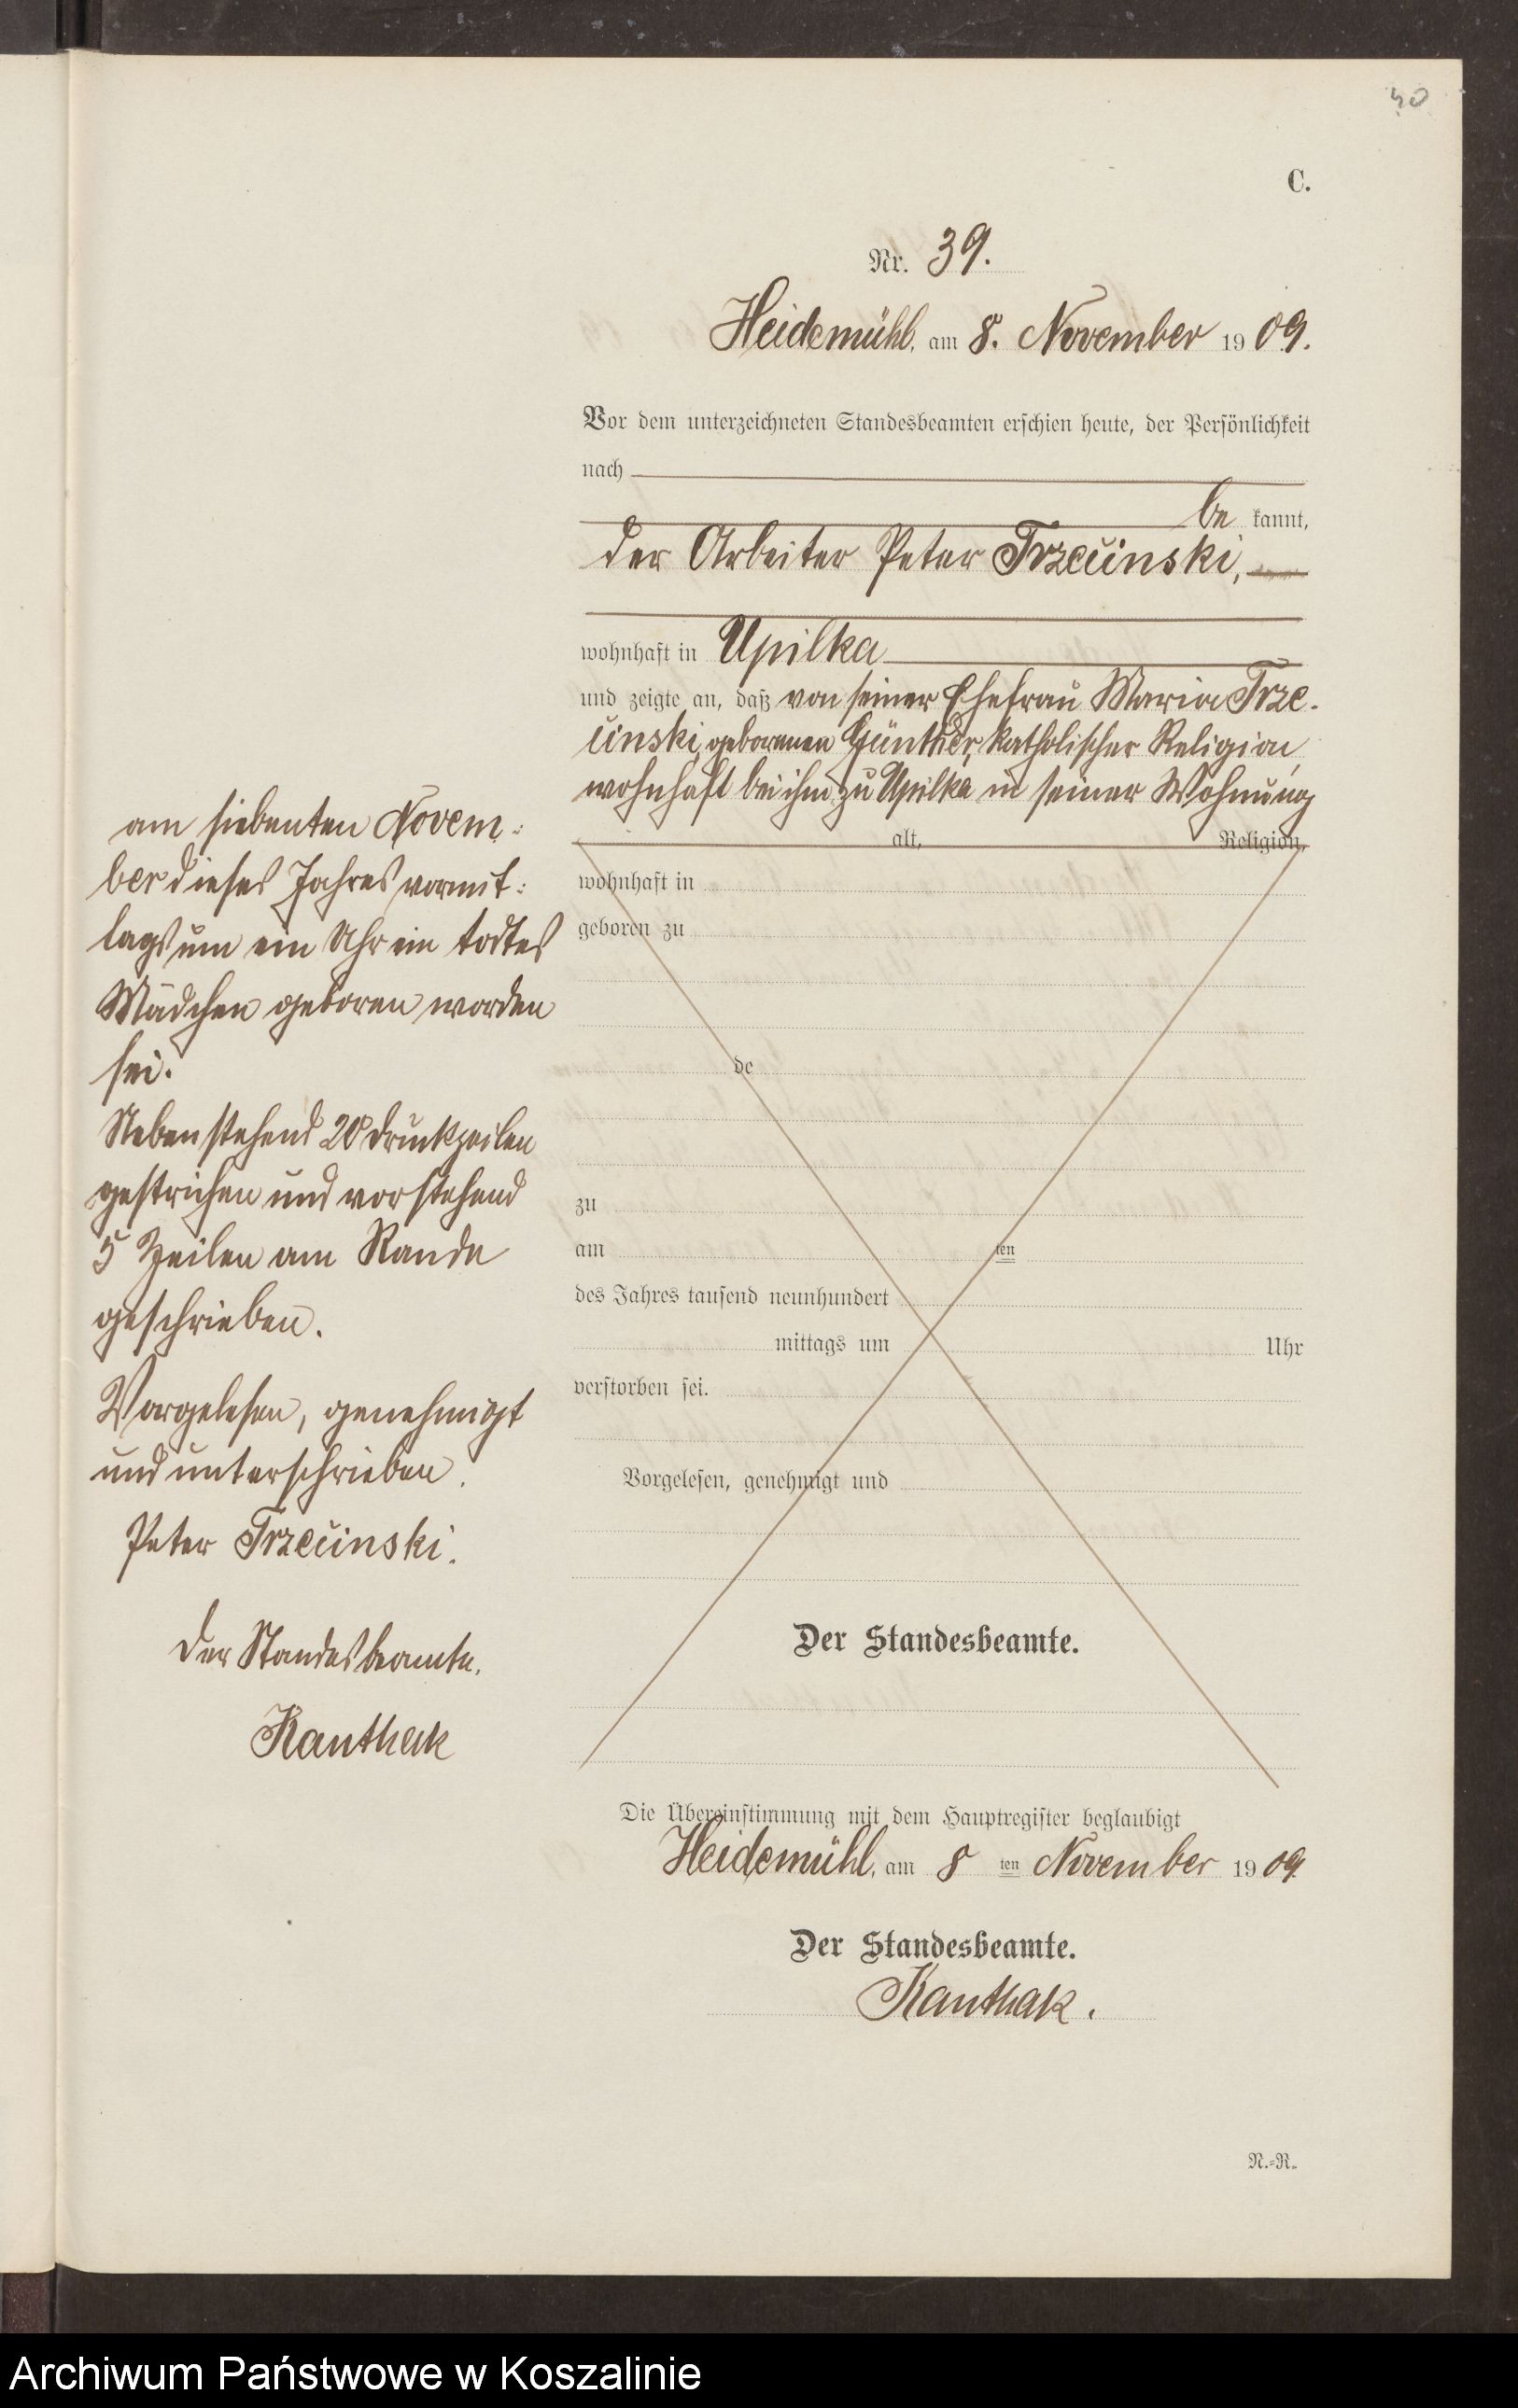 40
C.
Nr. 39.
Heidemühl, am 8. November 1909.
Vor dem unterzeichneten Standesbeamten erschien heute, der Persönlichkeit
nach
be kannt,
der Arbeiter Peter Trzeciinski,
wohnhaft in Upilka
und zeigte an, daß von seiner Ehefrau Maria Trze-
ciinski, geborenen Günther, katholischer Religion,
wohnhaft bei ihm zu Upilka in seiner Wohnung
alt, Religion,
wohnhaft in
geboren zu
de
zu
am ten
des Jahres tausend neunhundert
mittags um Uhr
verstorben sei.
Vorgelesen, genehmigt und
Der Standesbeamte.
am siebenten Novem-
ber dieses Jahres vormit-
tags um ein Uhr ein todtes
Mädchen geboren worden
sei.
Nebenstehend 20 Druckzeilen
gestrichen und vorstehend
5 Zeilen am Rande
geschrieben.
Vorgelesen, genehmigt
und unterschrieben.
Peter Trzeciinski.
Der Standesbeamte.
Kanthak
Die Übereinstimmung mit dem Hauptregister beglaubigt
Heidemühl, am 8 ten November 1909
Der Standesbeamte.
Kanthak.
N.=R.
Archiwum Państwowe w Koszalinie